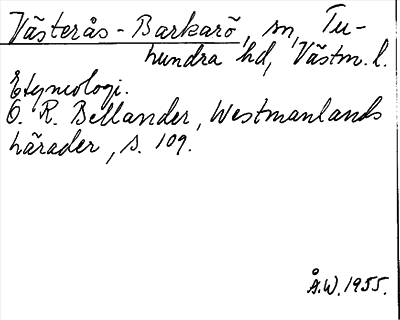 Västerås-Barkarö, sn, Tu-
hundra hd, Västm. l.
Etymologi.
O. R. Bellander, Westmanlands
härader, s. 109.
Å.W. 1955.